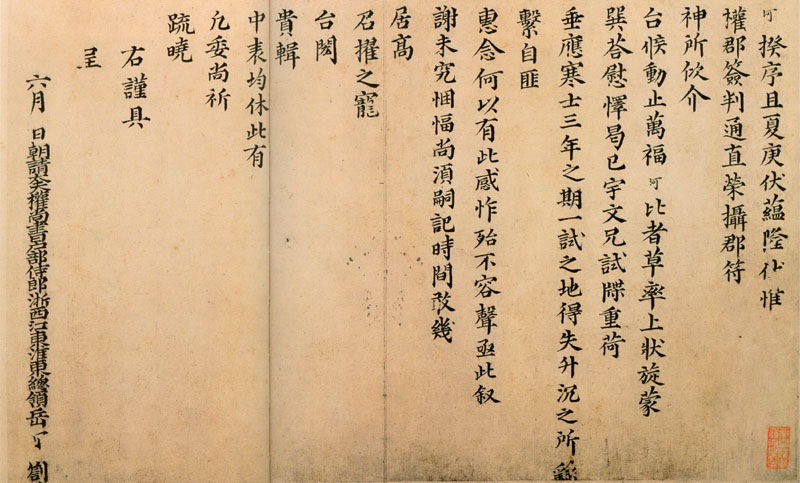 可揆序且夏庚伏蘊隆仆惟
權郡簽判通直榮攝郡符
神所佽介
台候動止萬福可比者草率上狀旋蒙
巽荅慰懌曷已宇文兄試牒重荷
垂應寒士三年之期一試之地得失升沉之所繇
繫自匪
惠念何以有此感怍殆不容聲亟此叙
謝未究悃愊尚須嗣記時間敢幾
居髙
召擢之寵
台閎
貴輯
中表均休此有
凢委尚祈
疏曉
右謹具
呈
六月 日朝請全權尚書戶部侍郎浙西江東淮東總領岳可劄